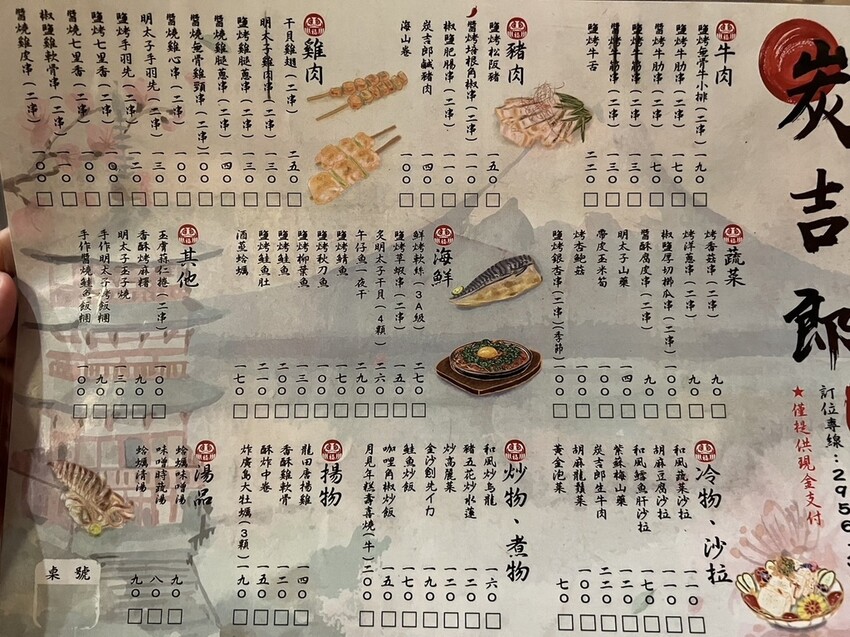 炭吉郎
訂位專線：2956
★僅提供現金支付
牛肉
鹽烤無骨牛小排(二串)一九〇
醬烤牛肋串(二串)一七〇
鹽烤牛肋串(二串)一七〇
醬烤牛筋串(二串)一三〇
鹽烤牛筋串(二串)一三〇
鹽烤牛舌 二二〇
豬肉
鹽烤松阪豬 一五〇
醬烤培根角椒串(二串)一一〇
椒鹽肥腸串(二串)一一〇
炭吉郎鹹豬肉 一四〇
海山卷 一〇〇
雞肉
干貝雞翅(二串)二五〇
明太子雞肉串(二串)一三〇
鹽烤雞腿蔥串(二串)一三〇
醬燒雞腿蔥串(二串)一四〇
醬燒無骨雞頸串(二串)一〇〇
醬燒雞心串(二串)一〇〇
明太子手羽先(二串)一三〇
鹽烤手羽先(二串)一二〇
鹽烤七里香(二串)一〇〇
醬燒七里香(二串)一〇〇
椒鹽雞軟骨串(二串)一一〇
醬燒雞皮串(二串)一〇〇
蔬菜
烤香菇串(二串)九〇
烤洋蔥串(二串)九〇
椒鹽厚切櫛瓜串(二串)一〇〇
醬酥腐皮串(二串)九〇
明太子山藥 一四〇
帶皮玉米筍 一〇〇
烤杏鮑菇 一〇〇
鹽烤銀杏串(二串)(季節)一〇〇
海鮮
鮮烤軟絲(3A級)二七〇
鹽烤草蝦串(二串)一五〇
炙明太子干貝(4顆)二六〇
午仔魚一夜干 一七〇
鹽烤鯖魚 一九〇
鹽烤秋刀魚 一〇〇
鹽烤柳葉魚 一三〇
鹽烤鮭魚 一〇〇
鹽烤鮭魚肚 二一〇
酒蒸蛤蠣 一七〇
其他
玉膏蒟仁捲(二串)一〇〇
香酥烤麻糬 九〇
明太子玉子燒 一三〇
手作明太子烤飯糰 九〇
手作醬燒鮭魚飯糰 一〇〇
冷物、沙拉
和風蔬菜沙拉 一一〇
胡麻豆腐沙拉 一一〇
和風鱈魚肝沙拉 二二〇
紫蘇梅山藥 一一〇
炭吉郎生牛肉 二二〇
胡麻龍鬚菜 一〇〇
黃金泡菜 七〇
炒物、煮物
和風炒烏龍 一六〇
豬五花炒水蓮 一二〇
炒高麗菜 一二〇
金沙魷先イカ 一九〇
鮭魚炒飯 一七〇
咖哩角椒炒飯 一六〇
月見年糕壽喜燒(牛)二〇〇
揚物
龍田唐揚雞 一四〇
香酥雞軟骨 一二〇
酥炸中卷 一五〇
炸廣島大牡蠣(3顆)一九〇
湯品
蛤蠣味噌湯 九〇
味噌時蔬湯 八〇
蛤蠣清湯 九〇
桌號